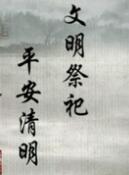 文明祭祀
平安清明